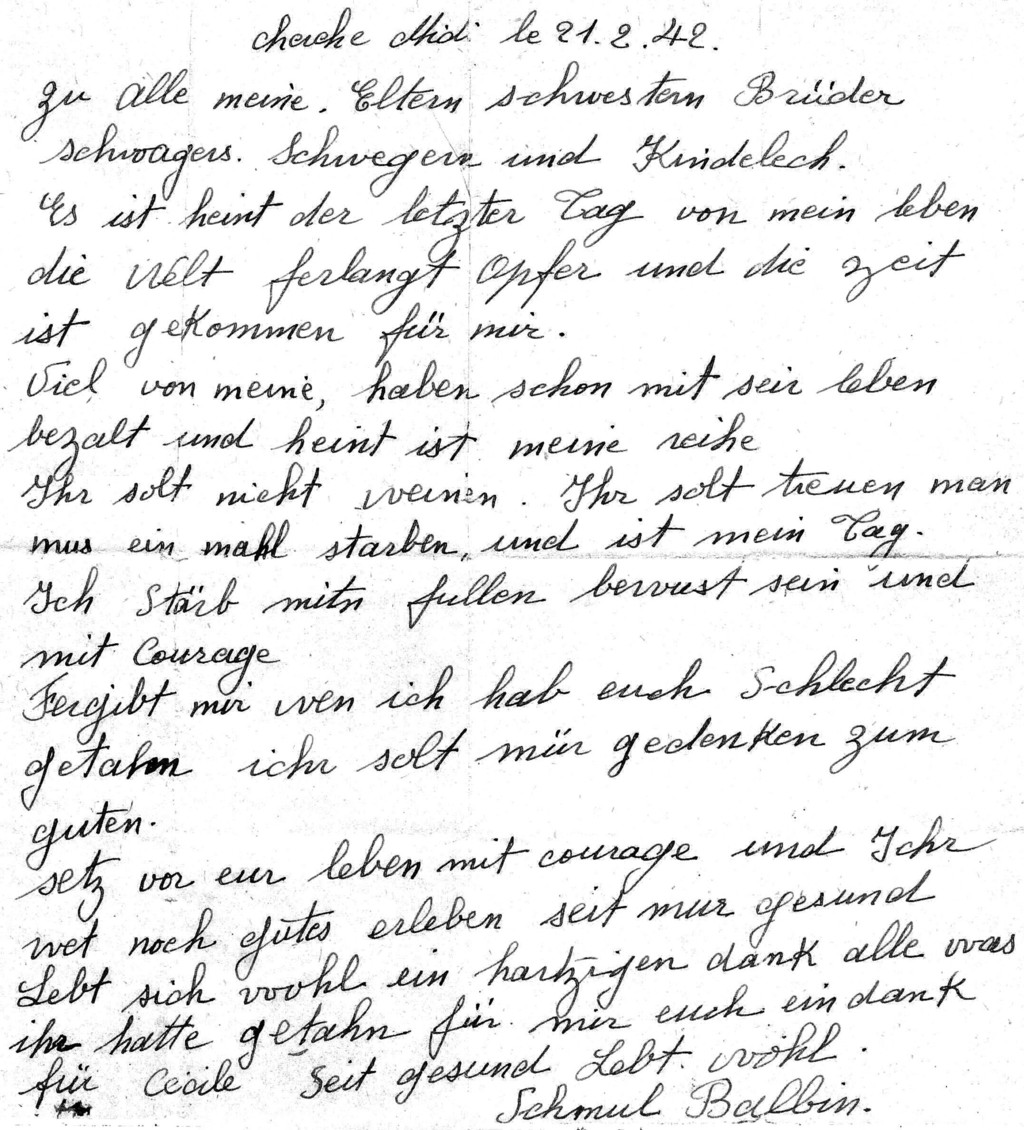 cherche Midi le 21.2.42.
zu alle meine. Eltern schwestern Brüder
schwagers. Schwegern und Kindelech.
Es ist heint der letzter Tag von mein leben
die Welt ferlangt Opfer und die zeit
ist gekommen für mir.
Viel von meine, haben schon mit seir leben
bezalt und heint ist meine reihe
Ihr solt nicht weinen. Ihr solt treuen man
mus ein mahl starben, und ist mein Tag.
Ich Stärb mitn fullen bewust sein und
mit Courage
Fergibt mir wen ich hab euch Schlecht
getahn ichr solt mür gedenken zum
guten.
setz vor eur leben mit courage und Ichr
wet noch gutes erleben seit mur gesund
Lebt sich woohl ein hartzigen dank alle was
ihr hatte getahn für mir euch ein dank
für Cécile Seit gesund Lebt wohl.
Schmul Balbin.